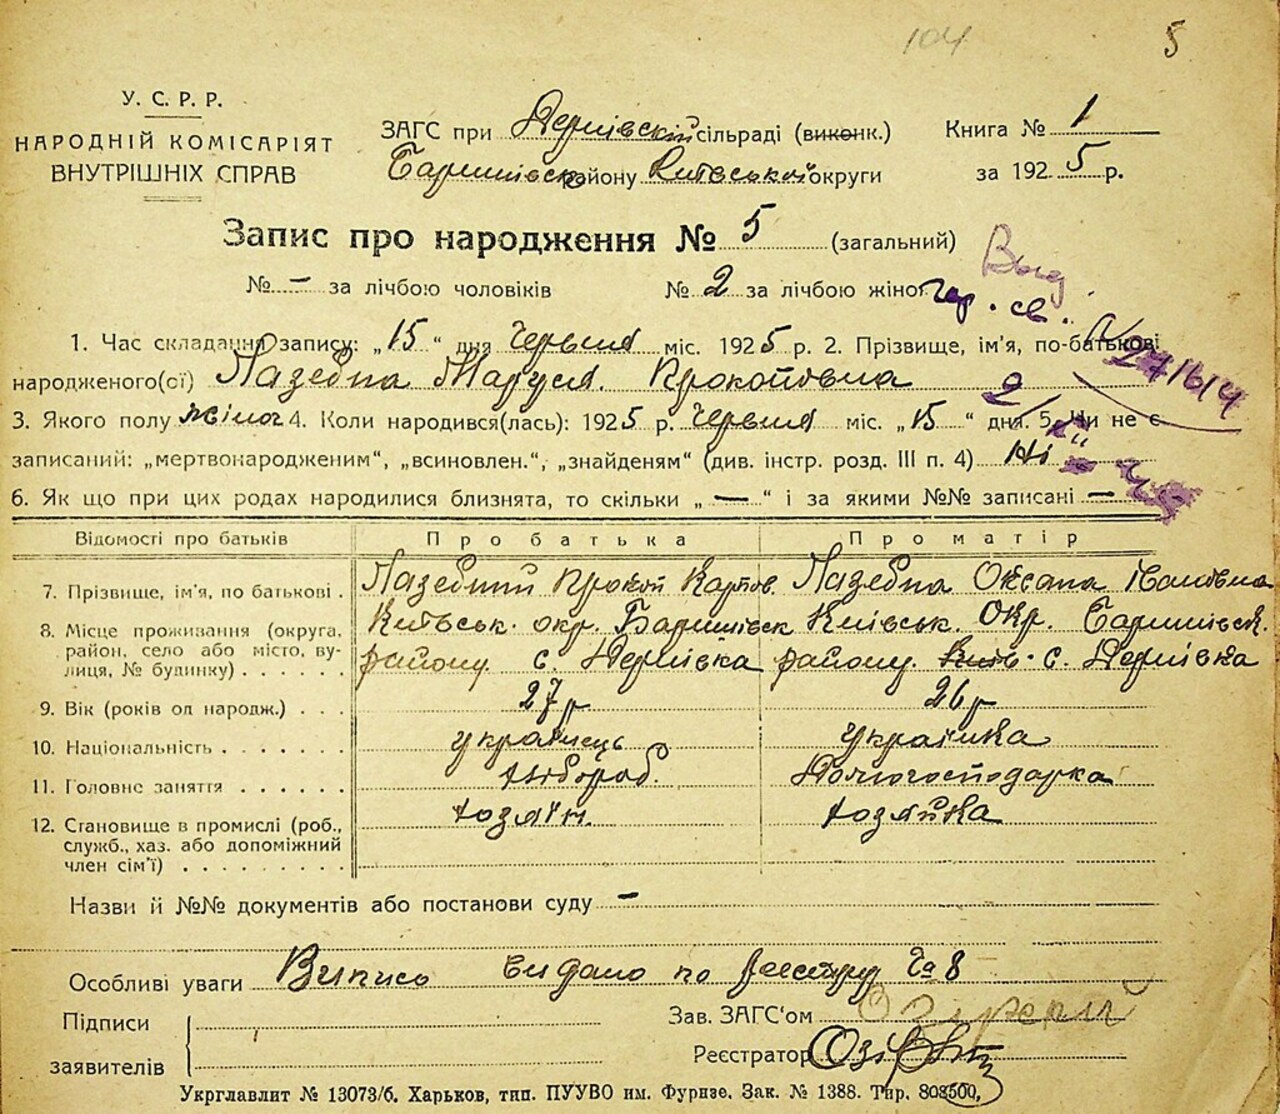 104 5
У. С. Р. Р.
НАРОДНІЙ КОМІСАРІЯТ
ВНУТРІШНІХ СПРАВ
ЗАГС при Дернівскій сільраді (виконк.) Книга № 1
Баришівськ району Київської округи за 1925 р.
Запис про народження № 5 (загальний)
№ – за лічбою чоловіків № 2 за лічбою жінок
1. Час складання запису: „15" дня Червня міс. 1925 р. 2. Прізвище, ім'я, по-батькові
народженого(ої) Лазебна Маруся Прокопівна
3. Якого полу жіноч 4. Коли народився(лась): 1925 р. Червня міс. „15" дня. 5. Чи не є
записаний: „мертвонародженим", „всиновлен.", „знайденям" (див. інстр. розд. III п. 4) Ні
6. Як що при цих родах народилися близнята, то скільки „—" і за якими №№ записані –
Відомості про батьків Про батька Про матір
7. Прізвище, ім'я, по батькові . Лазебний Прокоп Карпов. Лазебна Оксана Іванівна
8. Місце проживання (округа, район, село або місто, вулиця, № будинку) . . . . . . Київськ. окр. Баришівськ Київськ. Окр. Баришівськ.
району. с. Дернівка району. с. Дернівка
9. Вік (років од народж.) . . . 27 р 26 р
10. Національність . . . . . . . українець українка
11. Головне заняття . . . . . . хлібороб. Домогосподарка
12. Становище в промислі (роб., служб., хаз. або допоміжний член сім'ї) . . . . . . . . . хозяїн. хозяйка
Назви й №№ документів або постанови суду –
Особливі уваги Випись видано по реестру № 8
Підписи
заявителів
Зав. ЗАГС'ом
Реєстратор
Укрглавлит № 13073/б. Харьков, тип. ПУУВО им. Фурнзе. Зак. № 1388. Тир. 808500.